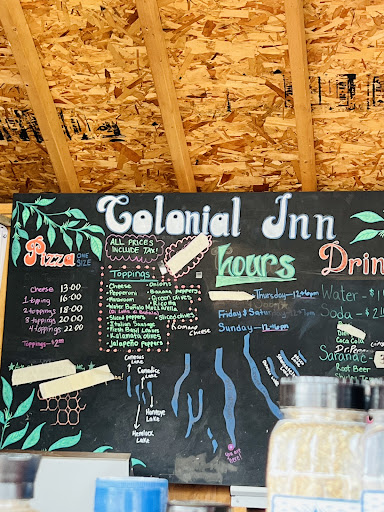 Colonial Inn
Pizza ONE SIZE
Cheese 13.00
1 topping 16.00
2 toppings 18.00
3 toppings 20.00
4 toppings 22.00
Toppings - $2.00
ALL PRICES INCLUDE TAX!
Toppings
• Cheese
• Pepperoni
• Mushroom
• Water Buffalo Mozzarella
• Sliced peppers
• Italian Sausage
• Fresh Basil Leaves
• Kalamata olives
• Jalapeño peppers
• Onions
• Banana peppers
• Green olives
• Ricotta
• Sliced olives
• Romano Cheese
hours
Thursday - 12-8pm
Friday & Satur
Sunday - 12-8pm
Canesus Lake
Canadice Lake
Honeoye Lake
Hemlock Lake
you are here!
Drin
Water -
Soda -
Coca Cola
Dr Pepper
Saranac
Root Beer